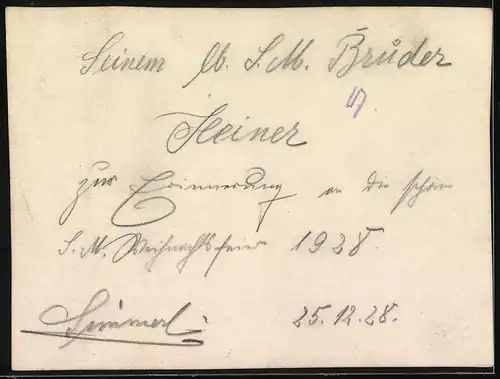 Seinem lb. S. M. Bruder
Heiner
zur Erinnerung an die schöne
S. M. Weihnachtsfeier 1928.
25.12.28.